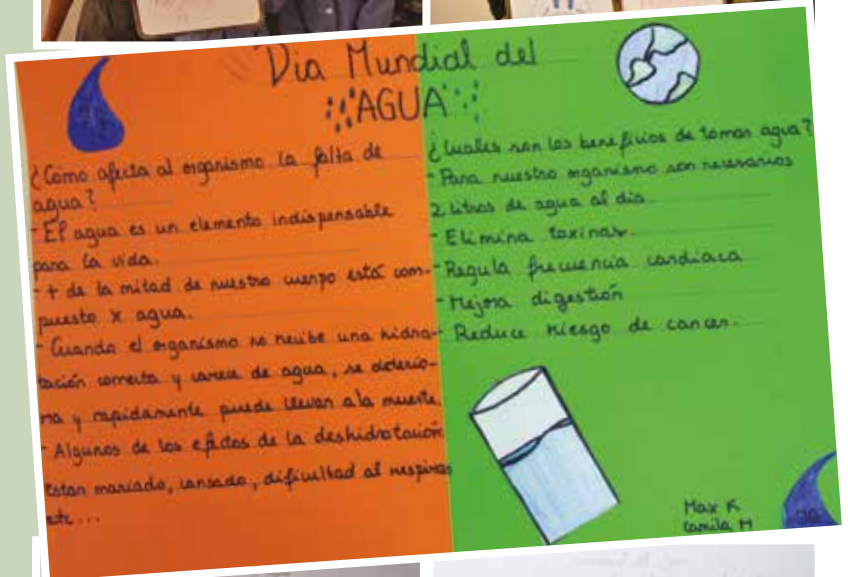 Dia Mundial del
AGUA
¿Cómo afecta al organismo la falta de
agua?
- El agua es un elemento indispensable
para la vida.
- + de la mitad de nuestro cuerpo está com-
puesto x agua.
- Cuando el organismo no recibe una hidra-
tación correcta y carece de agua, se deterio-
ra y rapidamente puede llevar a la muerte.
- Algunos de los efectos de la deshidratación
estar mariado, cansado, dificultad al respirar
etc...
¿Cuales son los beneficios de tomar agua?
- Para nuestro organismo son necesarios
2 litros de agua al dia.
- Elimina toxinas.
- Regula frecuencia cardiaca
- Mejora digestión
- Reduce riesgo de cancer.
Max K.
Camila M